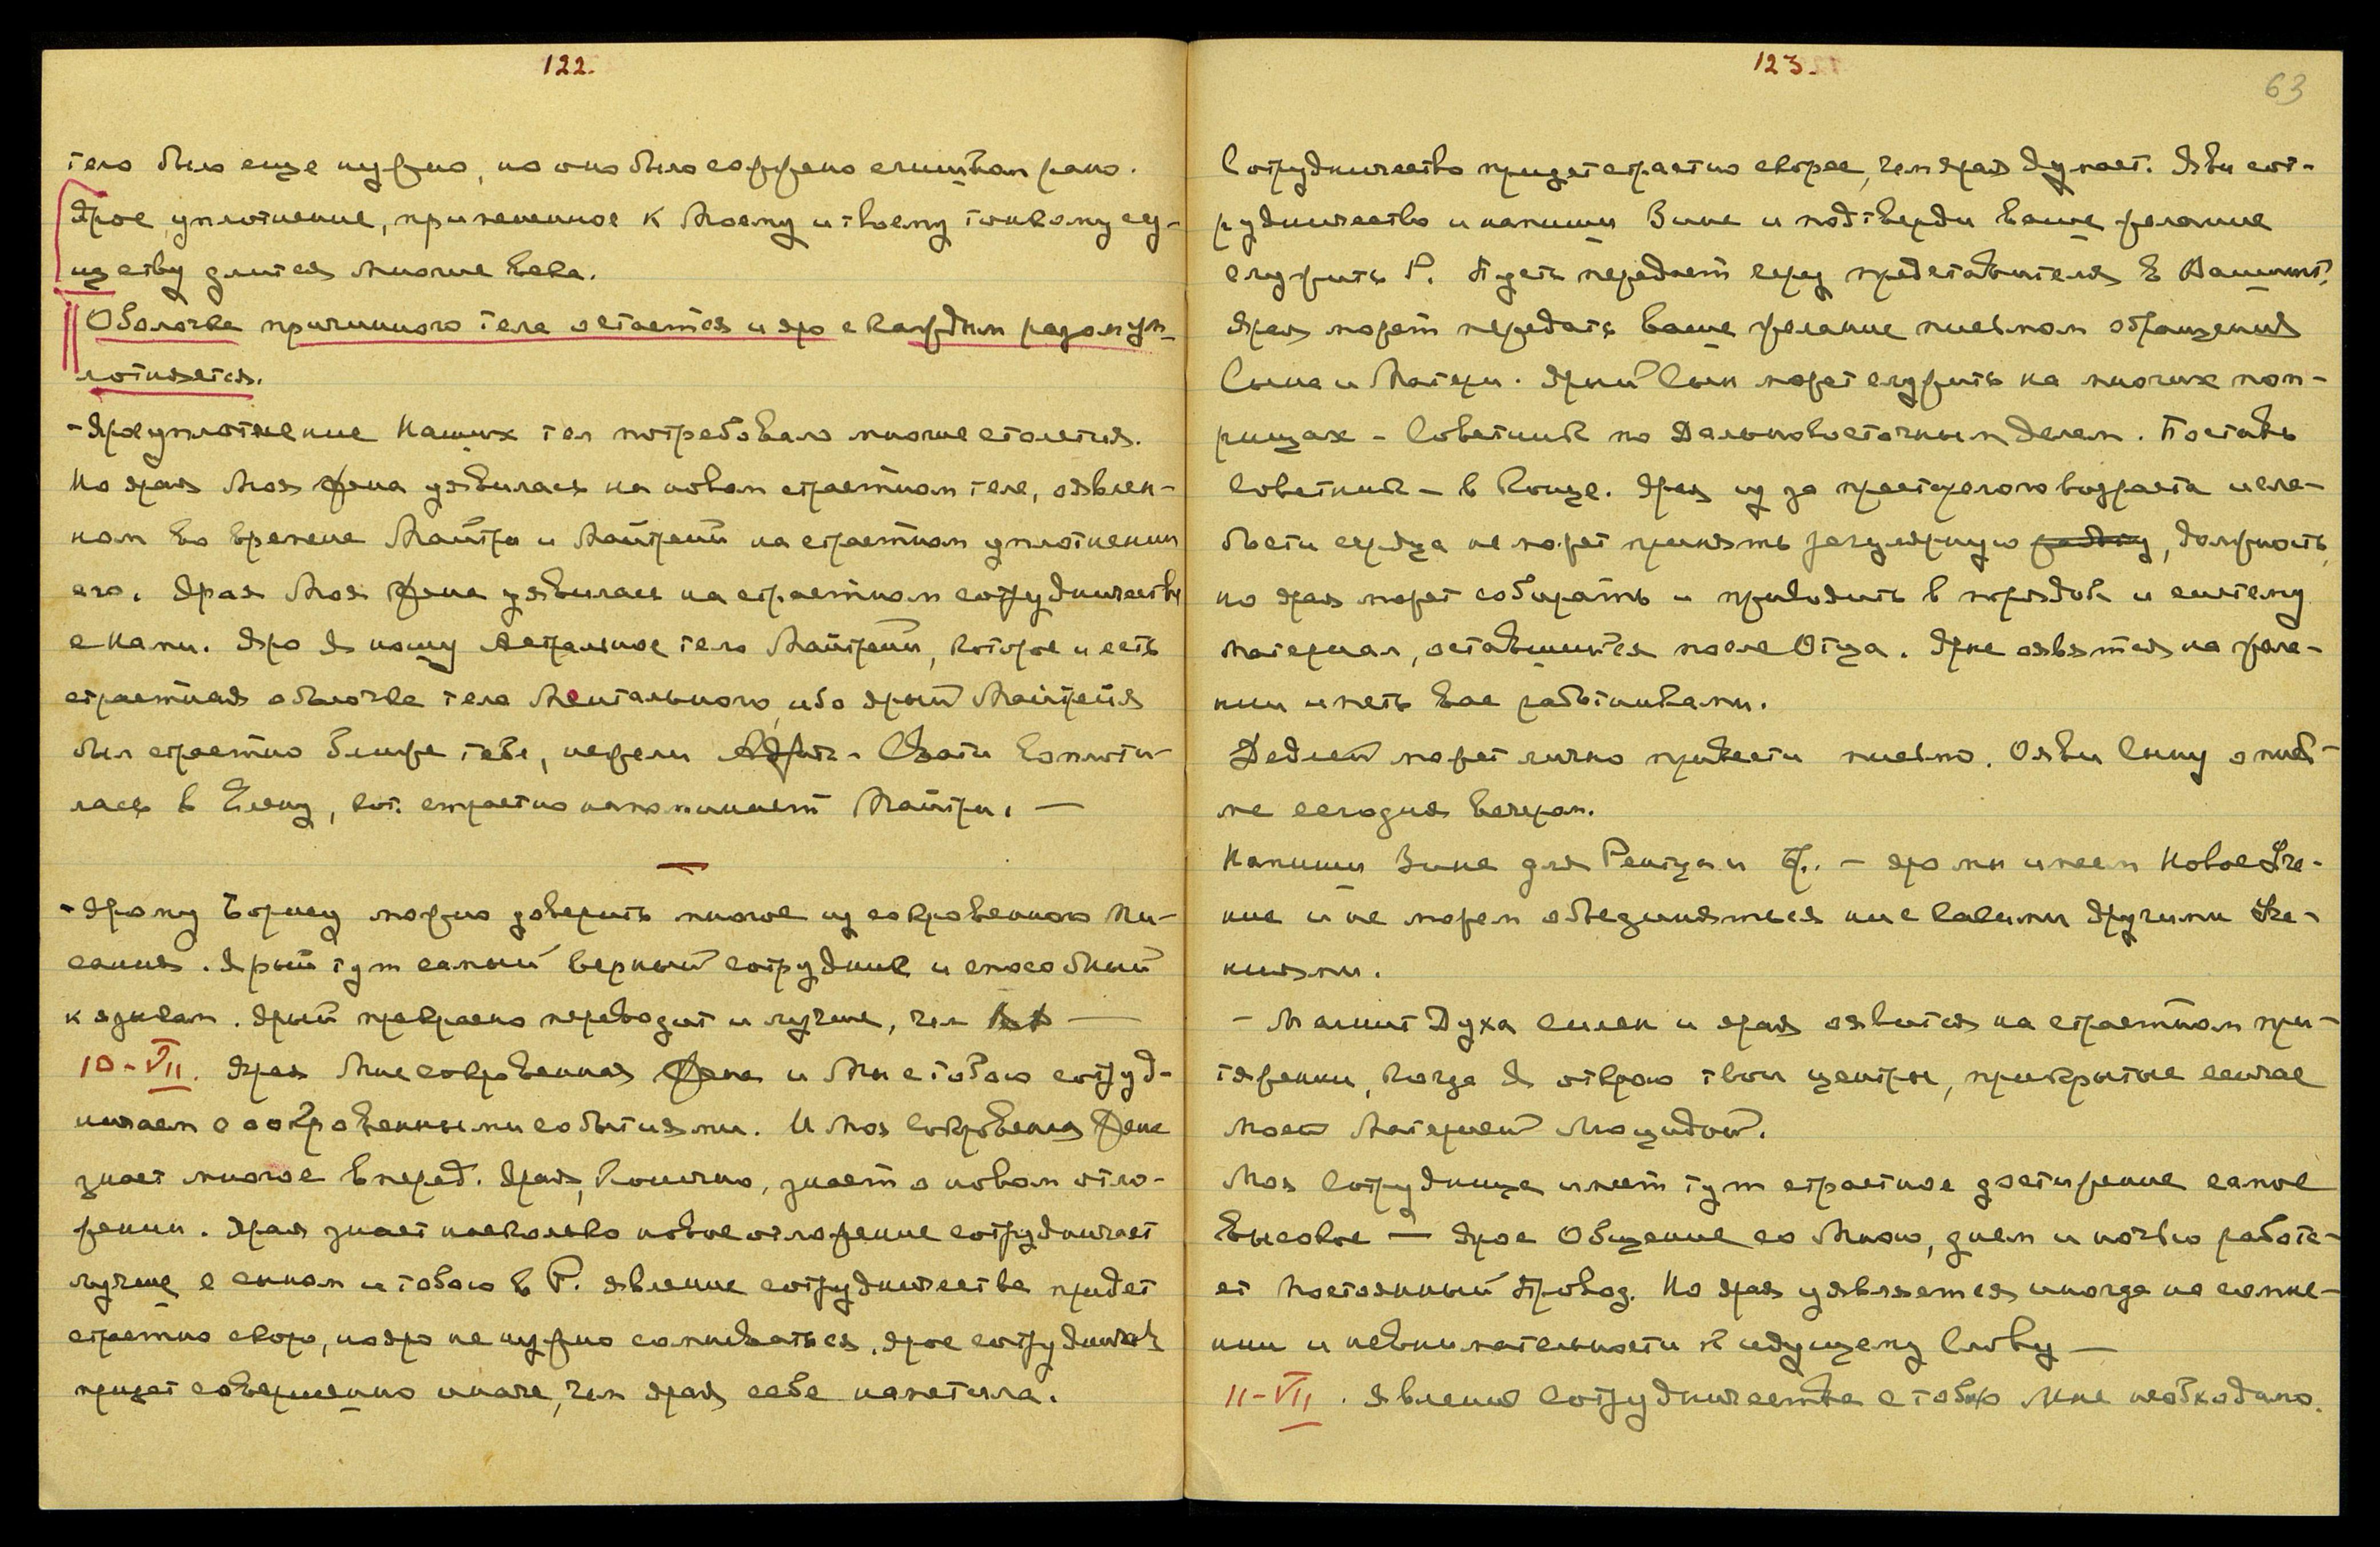 122.
тело было еще нужно, но оно было сожжено слишком рано.
Ярое уплотнение, примененное к Моему и твоему тонкому су-
ществу длится многие века.
Оболочка причинного тела остается и яро с каждым разом уп-
лотняется.
- Ярое уплотнение Наших тел потребовало многие столетия.
Но ярая Моя Фена уявилась на новом страстном теле, оявлен-
ном во времена Майтри и Майтрейи на страстном уплотнении
его. Ярая Моя Фена уявилась на страстном сотрудничестве
с Нами. Яро Я ношу Астральное тело Майтрейи, которое и есть
страстная оболочка тела Ментального, ибо ярый Майтрейя
был страстно ближе тебе, нежели Аджит. Свати воплоти-
лась в Елену, кот. страстно напоминает Майтри. —
- Ярому Борису можно доверить многое из сокровенного Пи-
сания. Ярый тут самый верный сотрудник и способный
к языкам. Ярый прекрасно переводит и лучше, чем —
10-VII. Ярая Мне сокровенная Фена и Мы с тобою сотруд-
ничаем с сокровенными событиями. И Моя сокровенная Фена
знает многое вперед. Ярая, конечно, знает о новом отло-
жении. Ярая знает насколько новое отложение сотрудничает
лучше с сыном и тобою в Р. явление сотрудничества придет
страстно скоро, но яро не нужно сомневаться. ярое сотруднич.
придет совершенно иначе, чем ярая себе наметила.
123.
63
Сотрудничество придет страстно скорее, чем ярая думает. Яви сот-
рудничество и напиши Зине и подтверди ваше желание
служить Р. Пусть передает через представителя в Вашингт.
Ярая может передать ваше желание письмом обращения
Сына и Матери. Ярый Сын может служить на многих поп-
рищах - Советник по Дальневосточным делам. Поставь
советник - в конце. Ярая из за престарелого возраста и сла-
бости сердца не может принять регулярную работу, должность,
но ярая может собирать и приводить в порядок и систему
материал, оставшийся после Отца. Ярые оявятся на жела-
нии иметь вас работниками.
Дедлей может лично привести письмо. Ояви Сыну о пись-
ме сегодня вечером.
Напиши Зине для Рентца и - яро мы имеем Новое Уче-
ние и не можем объединяться ни с какими другими Уче-
ниями.
- Магнит Духа силен и ярая оявится на страстном при-
тяжении, когда Я открою твои центры, прикрытые сейчас
Моей Материей Люцидой.
Моя Сотрудница имеет тут страстное достижение самое
высокое — Ярое Общение со Мною, днем и ночью работа-
ет постоянный Провод. Но ярая уявляется иногда на сомне-
нии и невнимательности к идущему Слову —
11-VII. Явление сотрудничества с тобою Мне необходимо.